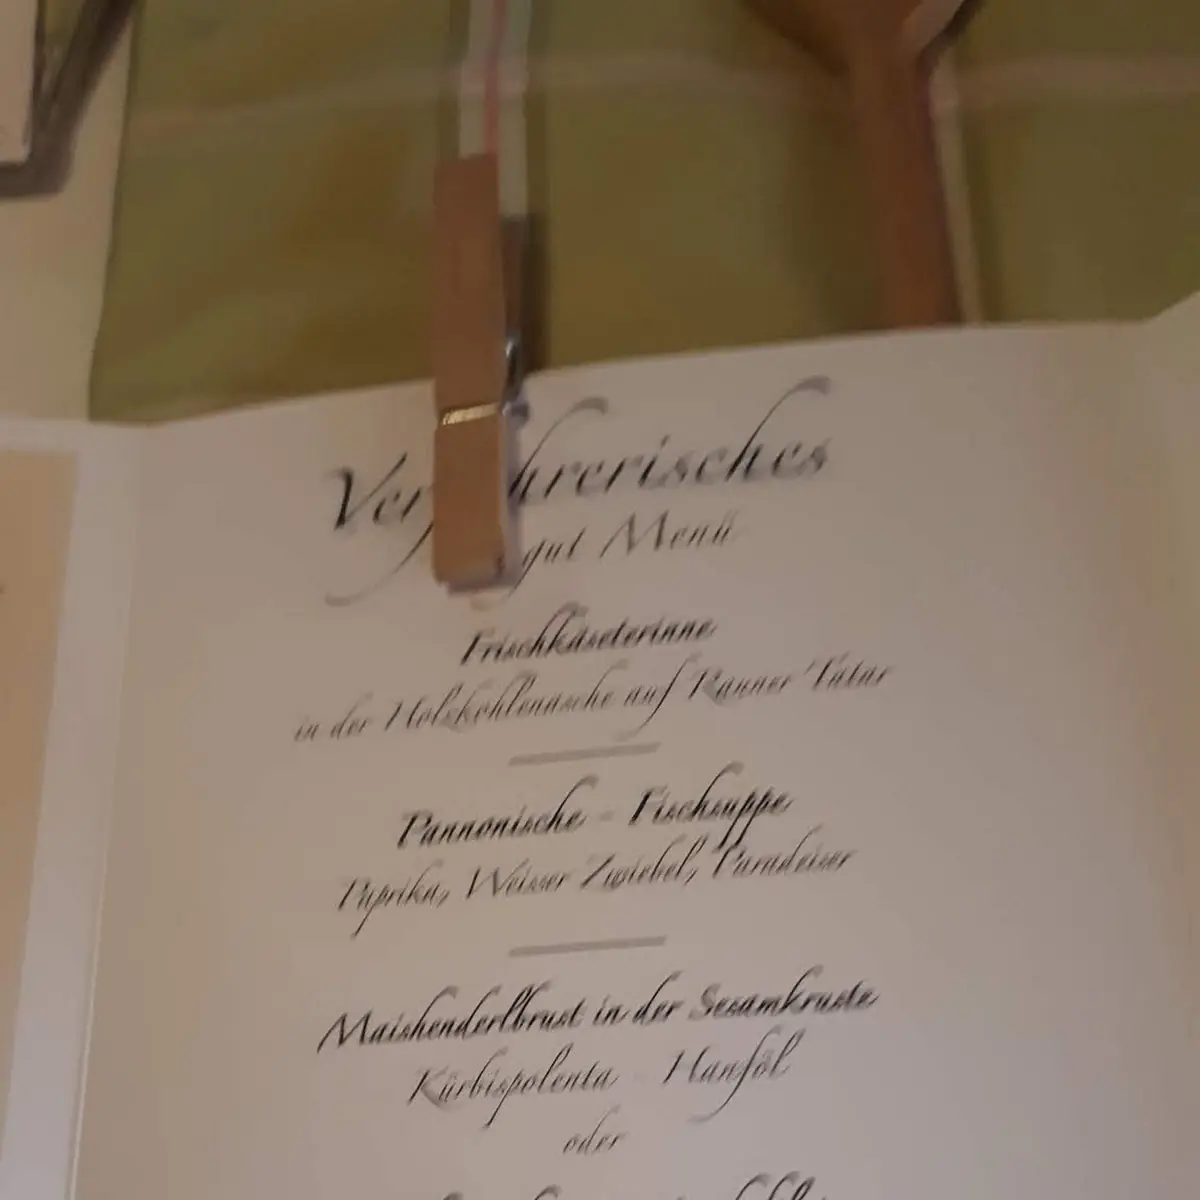 Verführerisches
gut Menü
Frischkäseterinne
in der Holzkohlenasche auf Rauner Tatar
Pannonische - Fischsuppe
Paprika, Weisser Zwiebel, Paradeiser
Maishenderlbrust in der Sesamkruste
Kürbispolenta - Hanföl
oder